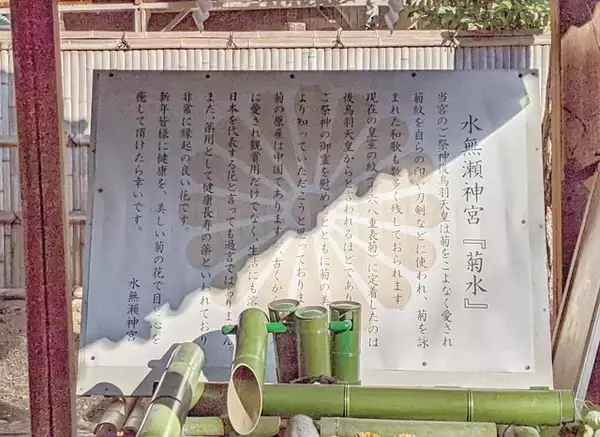 水無瀬神宮『菊水』
当宮のご祭神後鳥羽天皇は菊をこよなく愛され
菊紋を自らの印や刀剣などに使われ、菊を詠
まれた和歌も数多く残しておられます。
現在の皇室の紋 六八重表菊）に定着したのは
後鳥羽天皇からと言われるほどであ
ご祭神の御霊を慰めるとともに菊の美
より知っていただこうと思っておりま
菊の原産は中国でありますが、古くか
に愛され観賞用だけでなく、生活にも溶
日本を代表する花と言っても過言ではありません
また、薬用として健康長寿の薬といわれており
非常に縁起の良い花です。
新年皆様に健康を、美しい菊の花で目と心を
癒して頂けたら幸いです。
水無瀬神宮